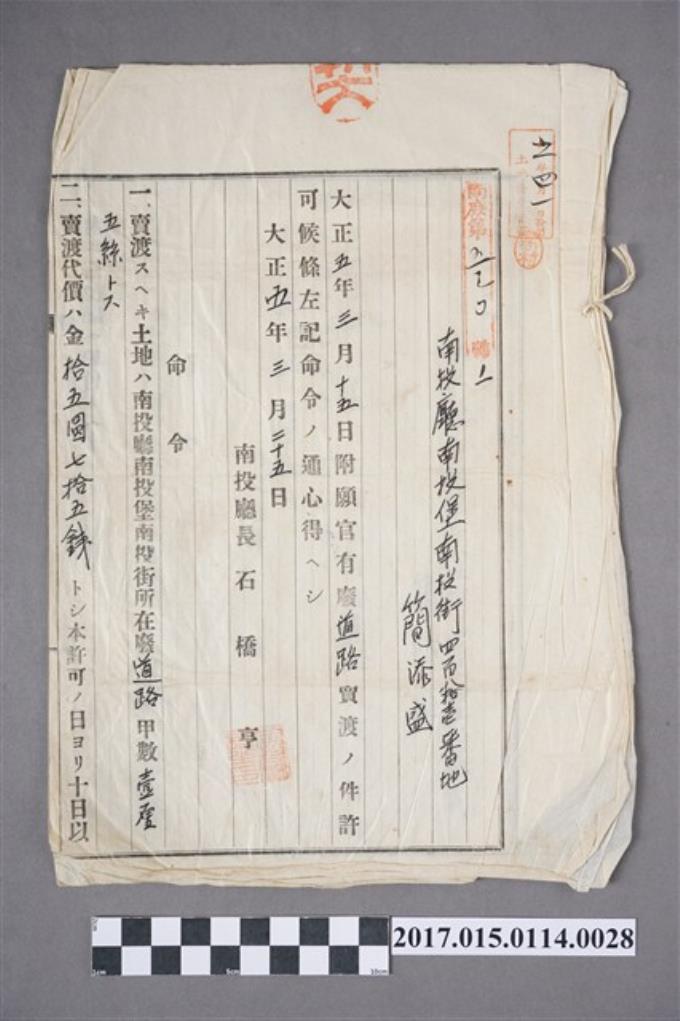 土四一
南投廳南投堡南投街四百拾壱番地
簡添盛
大正五年三月十五日附願官有廢道路賣渡ノ件許
可候條左記命令ノ通心得ヘシ
大正五年三月二十五日
南投廳長 石橋 亨
命令
一、賣渡スヘキ土地ハ南投廳南投堡南投街所在廢道路甲數壹厘
五絲トス
二、賣渡代價ハ金拾五圓七拾五錢トシ本許可ノ日ヨリ十日以
2017.015.0114.0028